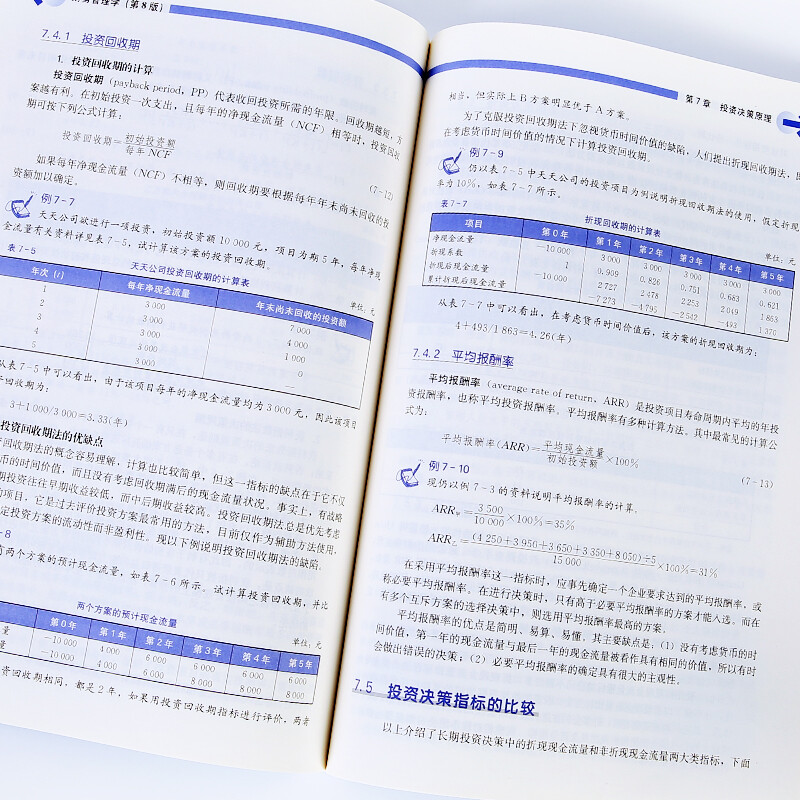 财务管理学（第8版）
7.4.1 投资回收期
1. 投资回收期的计算
投资回收期（payback period，PP）代表收回投资所需的年限。回收期越短，方
案越有利。在初始投资一次支出，且每年的净现金流量（NCF）相等时，投资回收
期可按下列公式计算：
投资回收期=初始投资额/每年 NCF
(7-12)
如果每年净现金流量（NCF）不相等，则回收期要根据每年年末尚未回收的投
资额加以确定。
例7-7
天天公司欲进行一项投资，初始投资额10 000元，项目为期5年，每年净现
金流量有关资料详见表7-5，试计算该方案的投资回收期。
表7-5 天天公司投资回收期的计算表 单位：元
年次（t） 每年净现金流量 年末尚未回收的投资额
1 3 000 7 000
2 3 000 4 000
3 3 000 1 000
4 3 000 0
5 3 000 —
从表7-5中可以看出，由于该项目每年的净现金流量均为3 000元，因此该项目
回收期为：
3+1 000/3 000=3.33(年)
投资回收期法的优缺点
回收期法的概念容易理解，计算也比较简单，但这一指标的缺点在于它不仅
币的时间价值，而且没有考虑回收期满后的现金流量状况。事实上，有战略
期投资往往早期收益较低，而中后期收益较高。投资回收期法总是优先考虑
的项目，它是过去评价投资方案最常用的方法，目前仅作为辅助方法使用，
定投资方案的流动性而非盈利性。现以下例说明投资回收期法的缺陷。
-8
有两个方案的预计现金流量，如表7-6所示。试计算投资回收期，并比
两个方案的预计现金流量 单位：元
第0年 第1年 第2年 第3年 第4年 第5年
量 -10 000 4 000 6 000 6 000 6 000 6 000
量 -10 000 4 000 6 000 8 000 8 000 8 000
资回收期相同，都是2年，如果用投资回收期指标进行评价，两者
第7章 投资决策原理
相当，但实际上B方案明显优于A方案。
为了克服投资回收期法下忽视货币时间价值的缺陷，人们提出折现回收期法，即
在考虑货币时间价值的情况下计算投资回收期。
例7-9
仍以表7-5中天天公司的投资项目为例说明折现回收期法的使用，假定折现
率为10%，如表7-7所示。
表7-7 折现回收期的计算表 单位：元
项目 第0年 第1年 第2年 第3年 第4年 第5年
净现金流量 -10 000 3 000 3 000 3 000 3 000 3 000
折现系数 1 0.909 0.826 0.751 0.683 0.621
折现后现金流量 -10 000 2 727 2 478 2 253 2 049 1 863
累计折现后现金流量 -7 273 -4 795 -2 542 -493 1 370
从表7-7中可以看出，在考虑货币时间价值后，该方案的折现回收期为：
4+493/1 863=4.26(年)
7.4.2 平均报酬率
平均报酬率（average rate of return，ARR）是投资项目寿命周期内平均的年投
资报酬率，也称平均投资报酬率。平均报酬率有多种计算方法。其中最常见的计算公
式为：
平均报酬率(ARR)=平均现金流量/初始投资额×100%
(7-13)
例7-10
现仍以例7-3的资料说明平均报酬率的计算。
ARR甲=3 500/10 000×100%=35%
ARR乙=(4 250+3 950+3 650+3 350+8 050)÷5/15 000×100%=31%
在采用平均报酬率这一指标时，应事先确定一个企业要求达到的平均报酬率，或
称必要平均报酬率。在进行决策时，只有高于必要平均报酬率的方案才能入选。而在
有多个互斥方案的选择决策中，则选用平均报酬率最高的方案。
平均报酬率的优点是简明、易算、易懂。其主要缺点是：（1）没有考虑货币的时
间价值，第一年的现金流量与最后一年的现金流量被看作具有相同的价值，所以有时
会做出错误的决策；（2）必要平均报酬率的确定具有很大的主观性。
7.5 投资决策指标的比较
以上介绍了长期投资决策中的折现现金流量和非折现现金流量两大类指标，下面